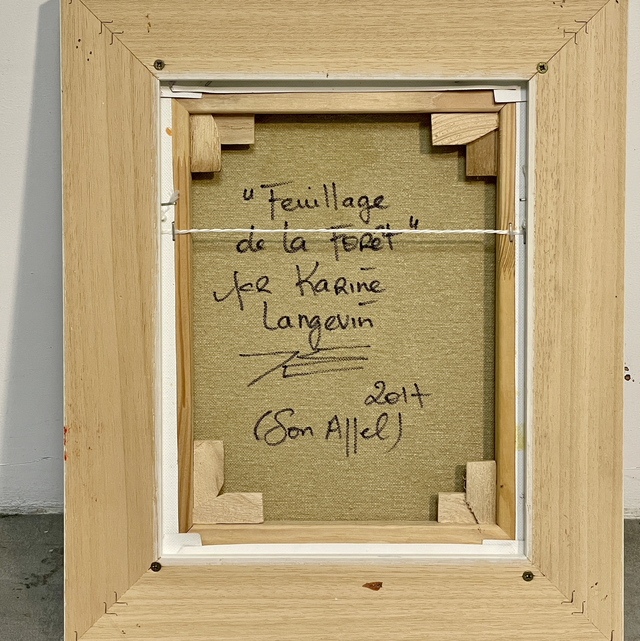 "Feuillage
de la FORêt"
par KARINE
Langevin
2017
(Son Appel)